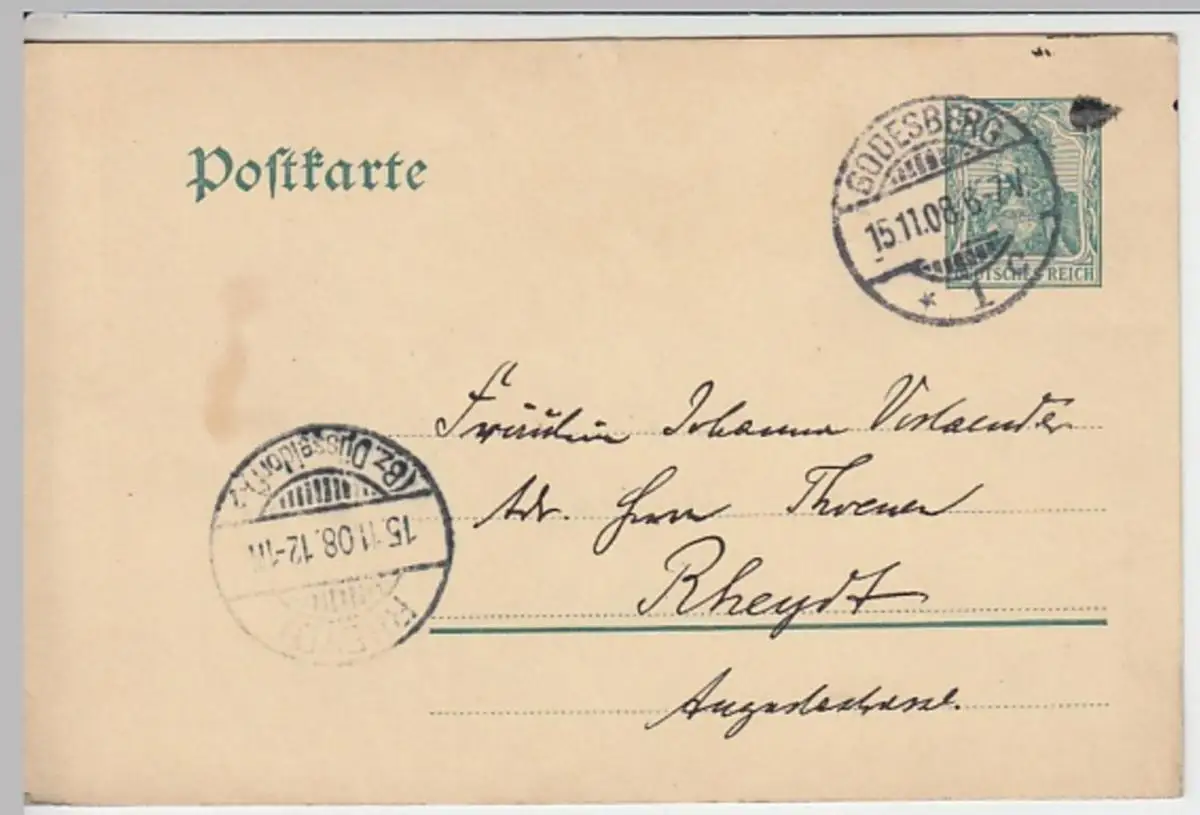 Postkarte
GODESBERG
15.11.08. 6-7V.
* 1 c
DEUTSCHES REICH
Fräulein Johanna Vorlaender
Adr. Herrn Thoenen
Rheydt
Augustastrasse.
(Bz. Düsseldorf)
15.11.08. 12-1N
RHEYDT